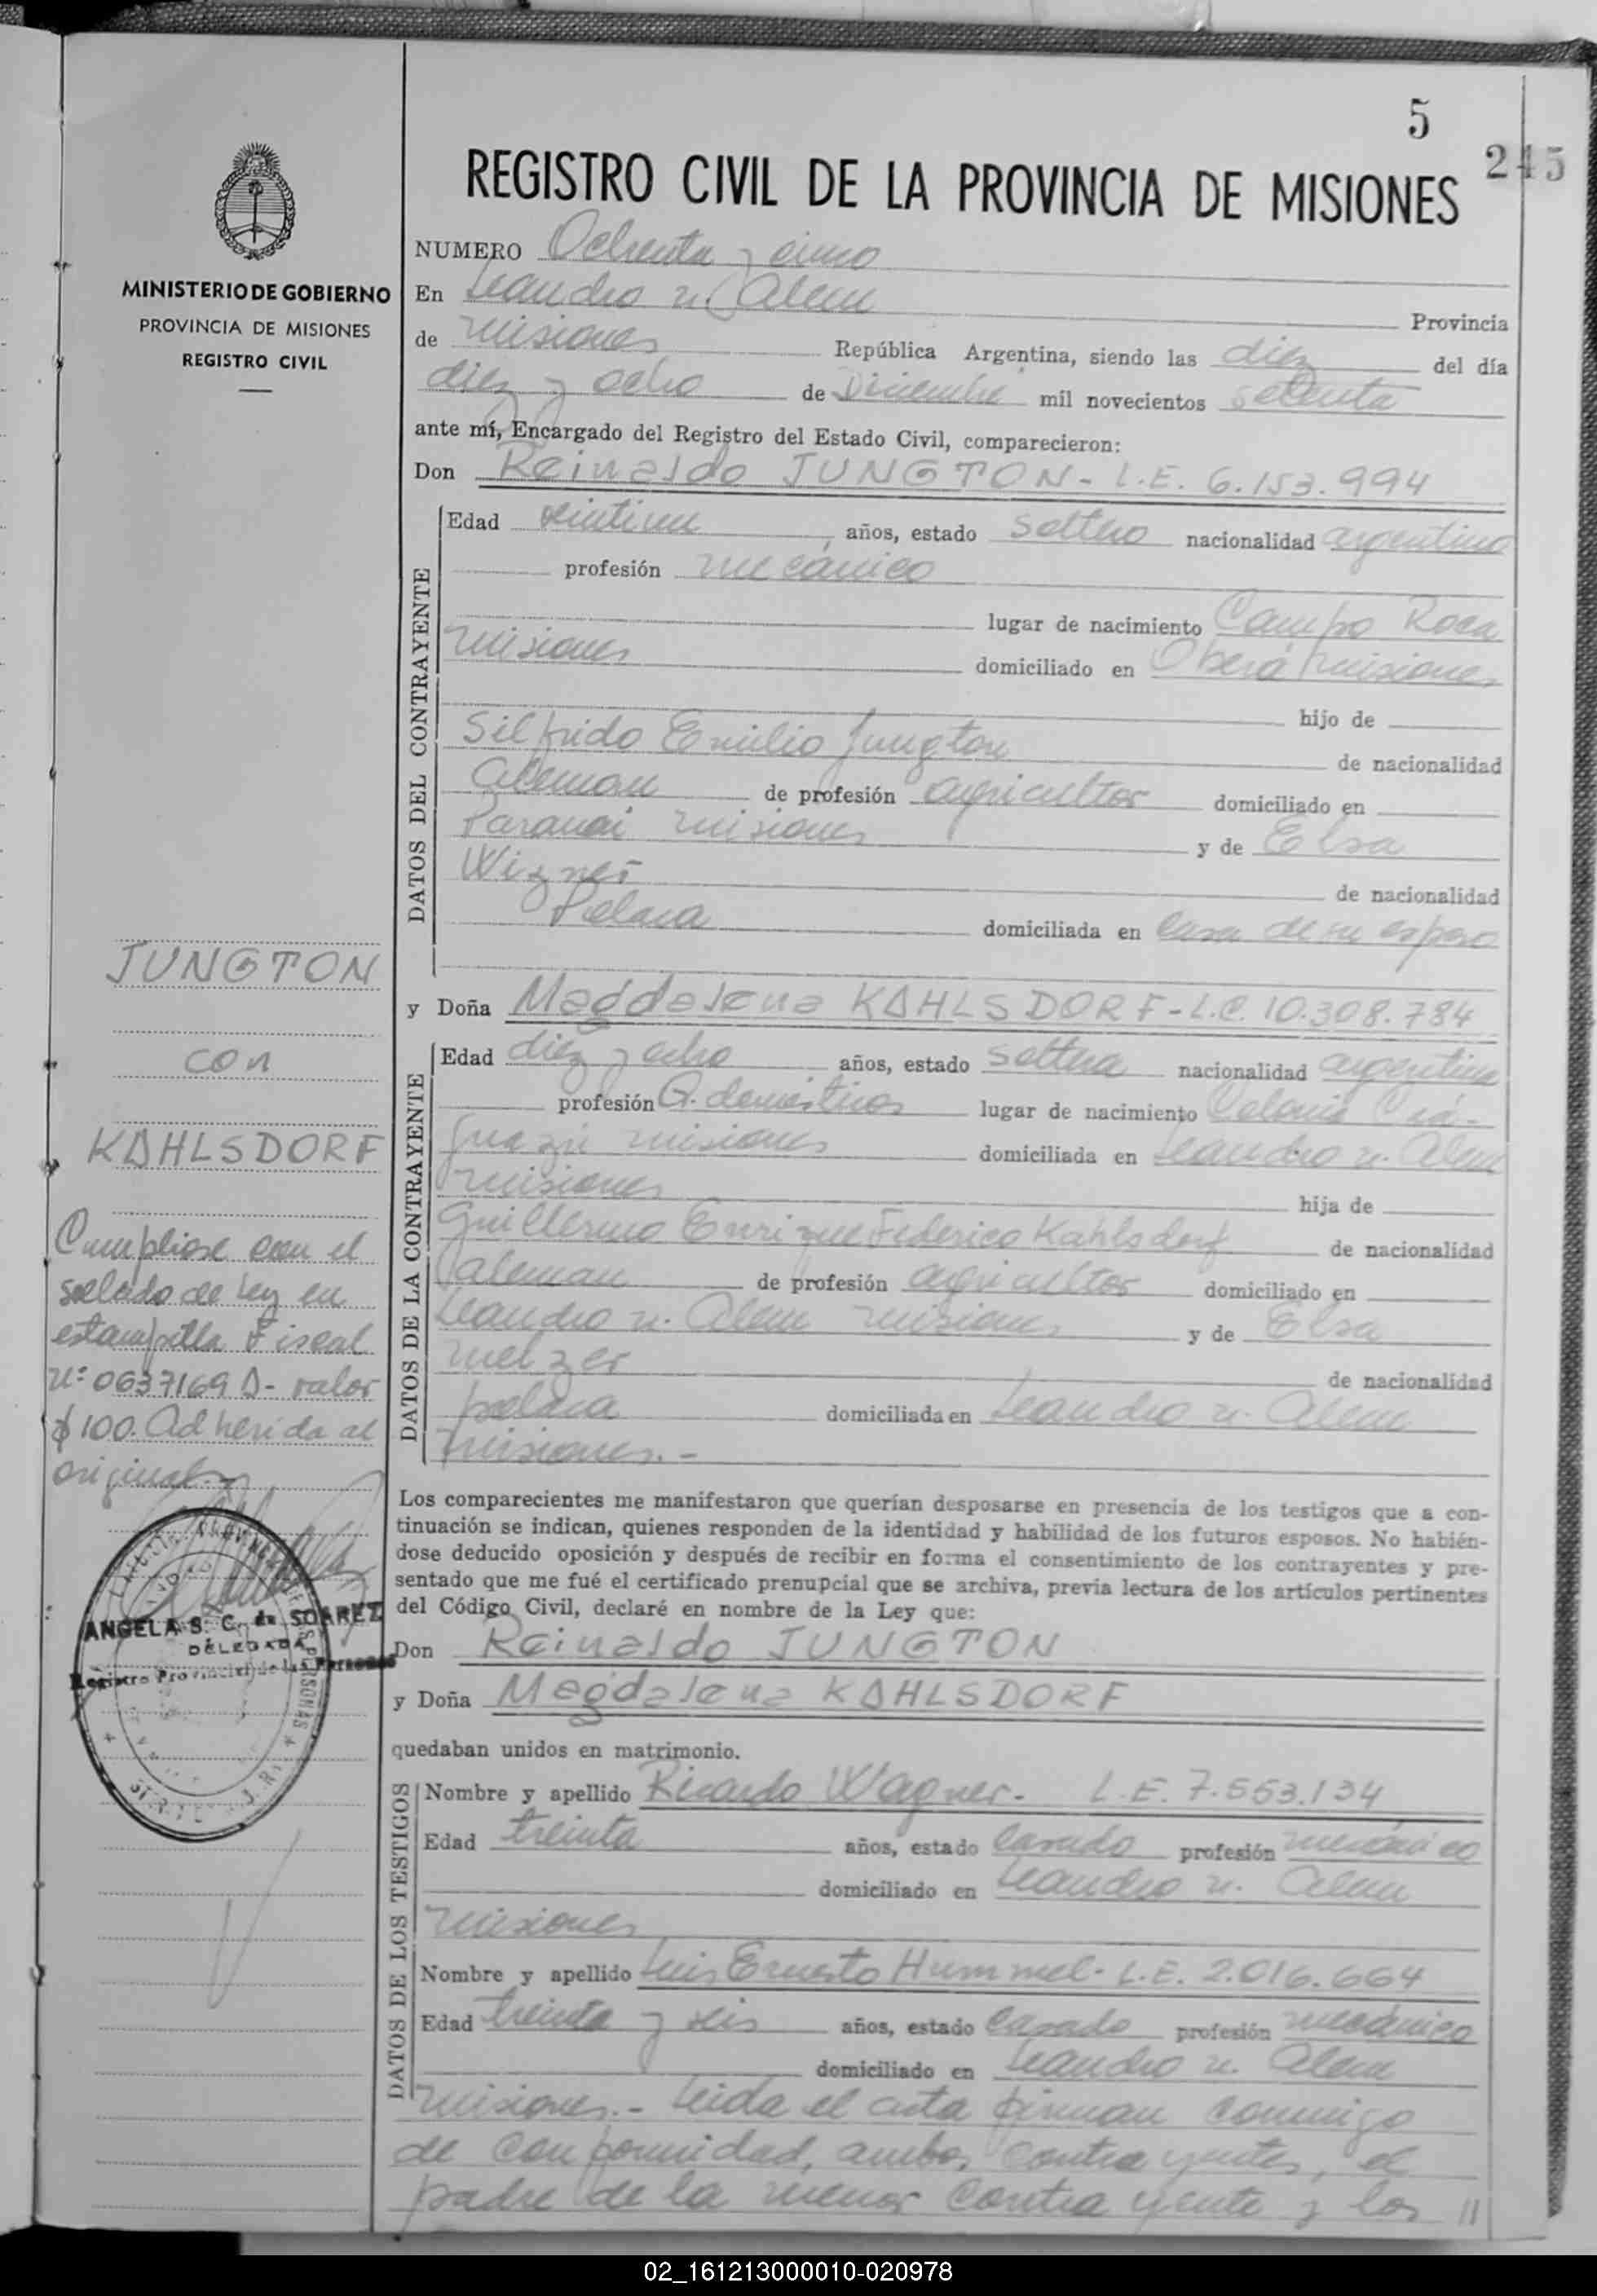 5
245
REGISTRO CIVIL DE LA PROVINCIA DE MISIONES
MINISTERIO DE GOBIERNO
PROVINCIA DE MISIONES
REGISTRO CIVIL
NUMERO Ochenta y cinco
En Leandro N. Alem Provincia
de Misiones República Argentina, siendo las diez del día
diez y ocho de Diciembre mil novecientos setenta
ante mí, Encargado del Registro del Estado Civil, comparecieron:
Don Reinaldo JUNGTON - L.E. 6.153.994
DATOS DEL CONTRAYENTE
Edad veintiun años, estado soltero nacionalidad argentino
profesión mecánico
lugar de nacimiento Campo Roca
Misiones domiciliado en Oberá Misiones
hijo de
Silfrido Emilio Jungton de nacionalidad
Aleman de profesión agricultor domiciliado en
Paranai Misiones y de Elsa
Wizner de nacionalidad
Polaca domiciliada en casa de su esposo
y Doña Magdalena KAHLSDORF - L.C. 10.308.784
DATOS DE LA CONTRAYENTE
Edad diez y ocho años, estado soltera nacionalidad argentina
profesión Q. domésticos lugar de nacimiento Colonia
Guazú Misiones domiciliada en Leandro N. Alem
Misiones hija de
Guillermo Enrique Federico Kahlsdorf de nacionalidad
aleman de profesión agricultor domiciliado en
Leandro N. Alem Misiones y de Elsa
Melzer de nacionalidad
polaca domiciliada en Leandro N. Alem
Misiones.-
JUNGTON
con
KAHLSDORF
Cumpliose con el
sellado de ley en
estampilla Fiscal
Nº 0637169 D- valor
$ 100. Adherida al
original.-
ANGELA S. C. de SOAREZ
DELEGADA
Registro Provincial de las Personas
Los comparecientes me manifestaron que querían desposarse en presencia de los testigos que a con-
tinuación se indican, quienes responden de la identidad y habilidad de los futuros esposos. No habién-
dose deducido oposición y después de recibir en forma el consentimiento de los contrayentes y pre-
sentado que me fué el certificado prenupcial que se archiva, previa lectura de los artículos pertinentes
del Código Civil, declaré en nombre de la Ley que:
Don Reinaldo JUNGTON
y Doña Magdalena KAHLSDORF
quedaban unidos en matrimonio.
DATOS DE LOS TESTIGOS
Nombre y apellido Ricardo Wagner.- L.E. 7.553.134
Edad treinta años, estado casado profesión mecánico
domiciliado en Leandro N. Alem
Misiones
Nombre y apellido Luis Ernesto Hummel - L.E. 2.016.664
Edad treinta y seis años, estado casado profesión mecánico
domiciliado en Leandro N. Alem
Misiones.- Leida el acta firman conmigo
de conformidad, ambos contrayentes, el
padre de la menor contrayente y los //
02_161213000010-020978